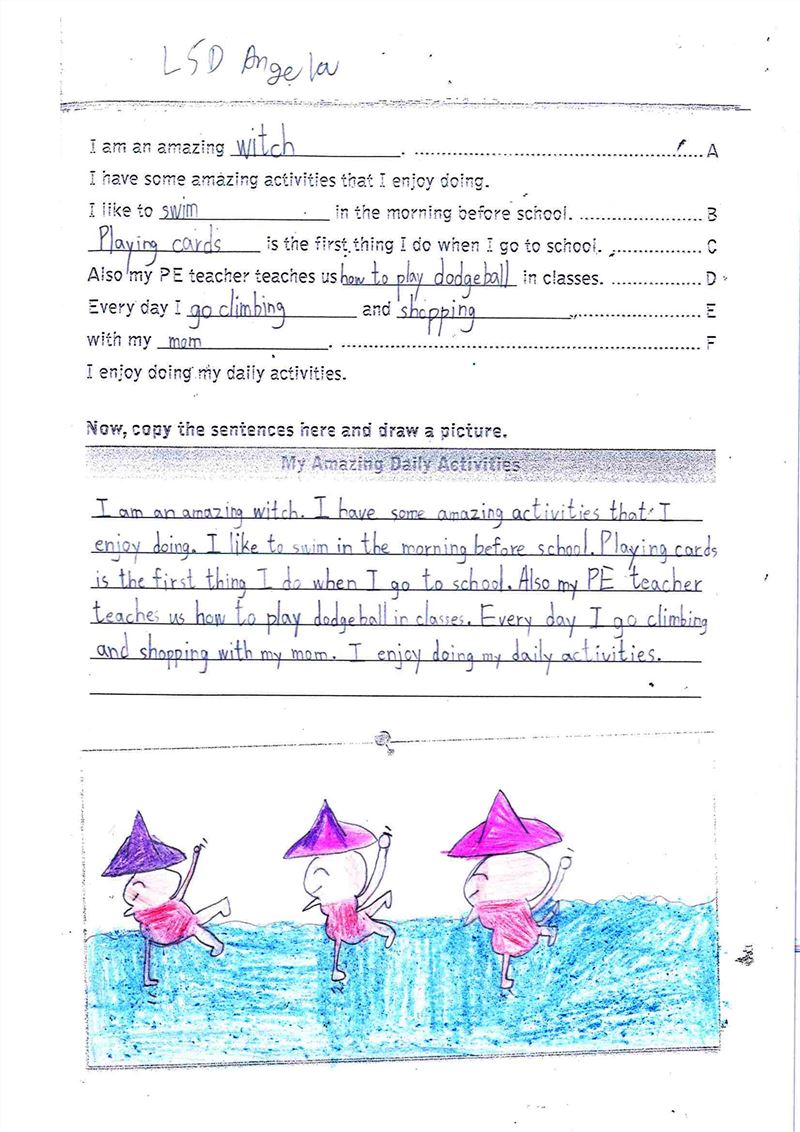 L5D Angela
I am an amazing witch. A
I have some amazing activities that I enjoy doing.
I like to swim in the morning before school. B
Playing cards is the first thing I do when I go to school. C
Also my PE teacher teaches us how to play dodgeball in classes. D
Every day I go climbing and shopping E
with my mom. F
I enjoy doing my daily activities.
Now, copy the sentences here and draw a picture.
My Amazing Daily Activities
I am an amazing witch. I have some amazing activities that I
enjoy doing. I like to swim in the morning before school. Playing cards
is the first thing I do when I go to school. Also my PE teacher
teaches us how to play dodgeball in classes. Every day I go climbing
and shopping with my mom. I enjoy doing my daily activities.